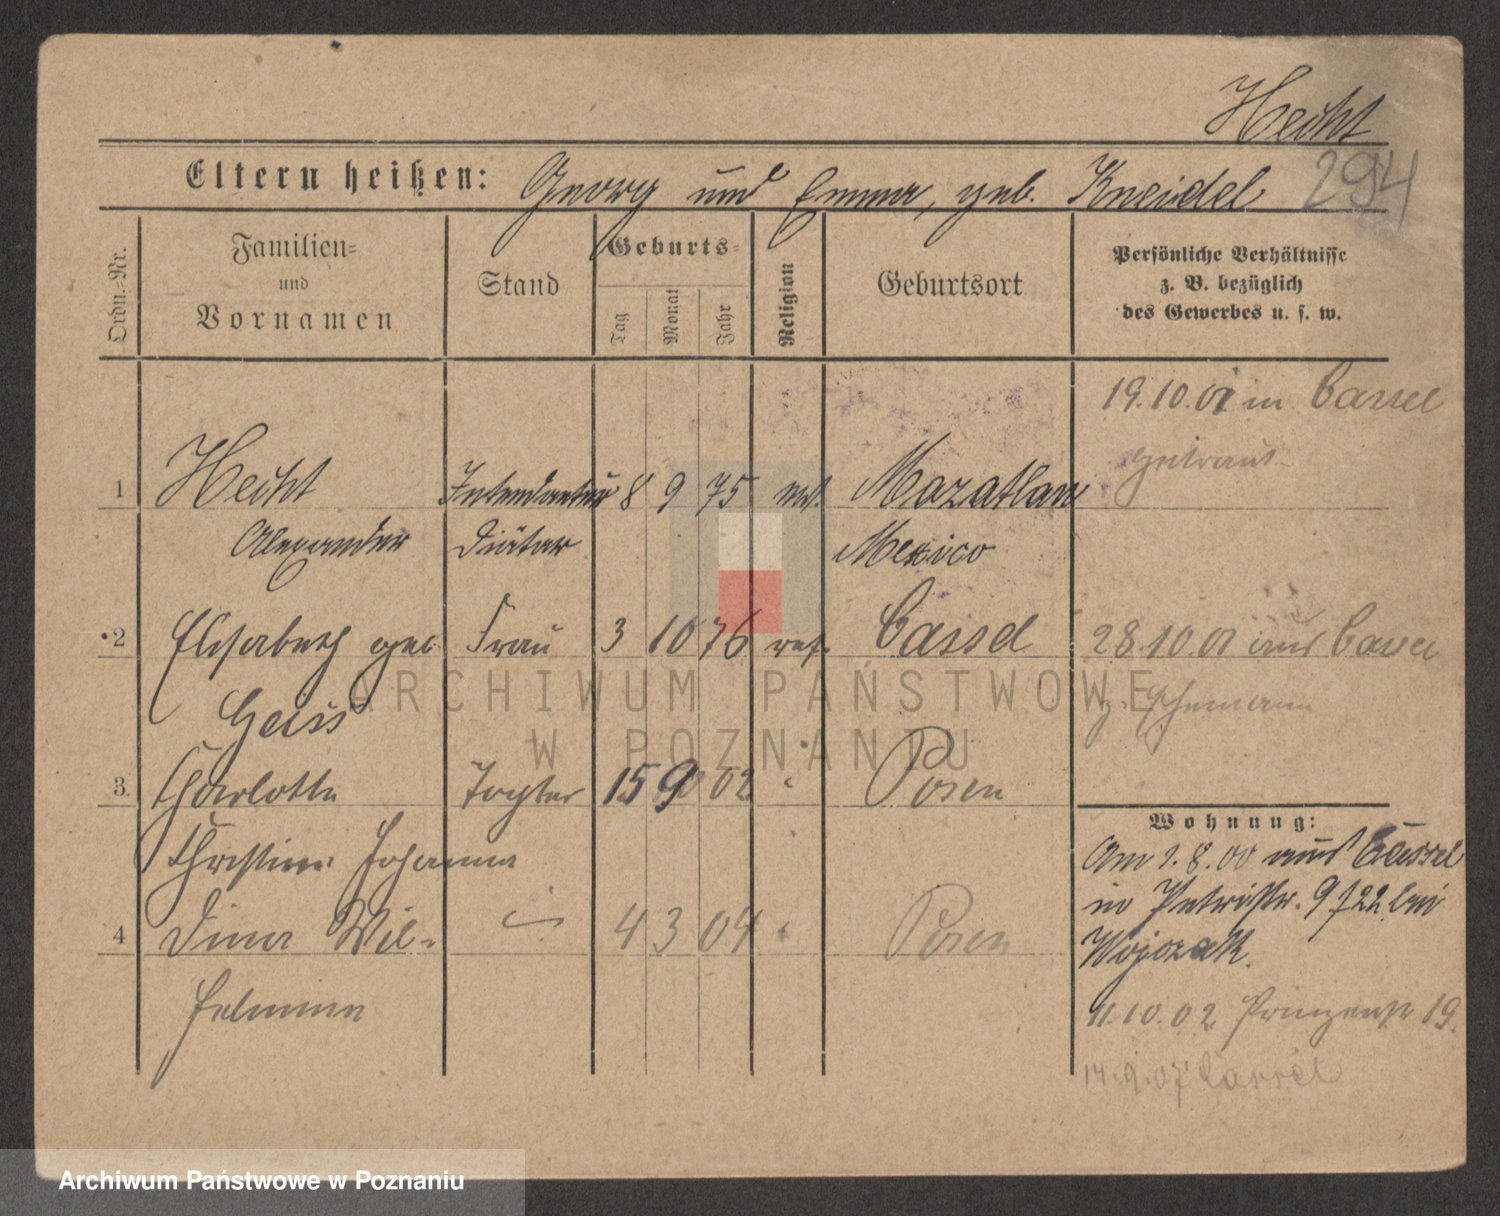 Hecht
294
Eltern heißen: Georg und Emma, geb. Kneidel
Ordn.-Nr.
Familien-
und
Vornamen
Stand
Geburts-
Tag
Monat
Jahr
Religion
Geburtsort
Persönliche Verhältnisse
z. B. bezüglich
des Gewerbes u. s. w.
19.10.01 in Cassel
getraut
1 Hecht Intendantur 8 9 75 ref. Mazatlan
Alexander Diätar Mexico
2 Elisabeth geb. Frau 3 10 76 ref. Cassel 28.10.01 aus Cassel
Geiss z. Ehemann
3. Charlotte Tochter 15 9 02 " Posen
Christine Johanna
4 Dina Wil- " 4 3 04 " Posen
helmine
Wohnung:
Am 2.8.00 aus Cassel
in Petristr. 9 f 22 bei
Wojczak.
11.10.02. Prinzenstr 19.
14.9.07 Cassel
ARCHIWUM PAŃSTWOWE
W POZNANIU
Archiwum Państwowe w Poznaniu